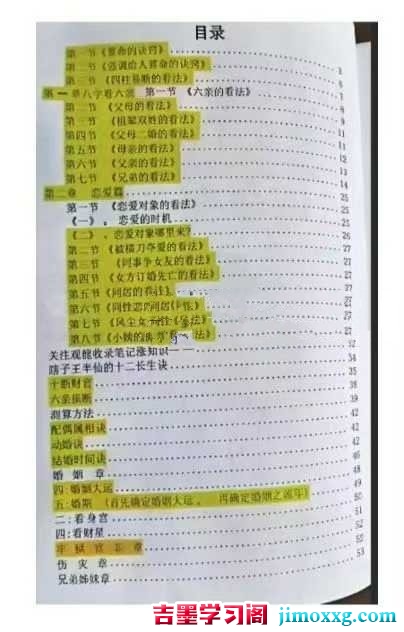 目录
第一节《算命的诀窍》 3
第二节《强调给人算命的诀窍》 5
第三节《四柱易断的看法》 6
第一章八字看六亲 第一节《六亲的看法》 7
第二节《父母的看法》 8
第三节《祖籍双姓的看法》 9
第四节《父母二婚的看法》 11
第五节《母亲的看法》 11
第六节《父亲的看法》
第七节《兄弟的看法》 14
第二章 恋爱篇 25
第一节《恋爱对象的看法》 25
《一》,恋爱的时机 25
《二》,恋爱对象哪里来? 26
第二节《被横刀夺爱的看法》 27
第三节《同事争女友的看法》 27
第四节《女方订婚先亡的看法》 27
第五节《同居的看法》 27
第六节《同性恋的看法》 27
第七节《风尘女 看法》 27
第八节《小姨的 看法》 27
关注观能收录笔记涨知识—— 32
瞎子王半仙的十二长生诀 34
十断财官 35
六亲损断 38
测算方法 39
配偶属相诀 42
动婚诀 42
结婚时间诀 42
婚 姻 章 46
四:婚姻大运 48
五:婚期(首先确定婚姻大运, 再确定婚姻之流年) 49
二:看身宫 50
四:看财星 51
牢 狱 官 非 章 52
伤 灾 章 52
兄弟姊妹章 53
吉墨学习阁 jimoxxg.com